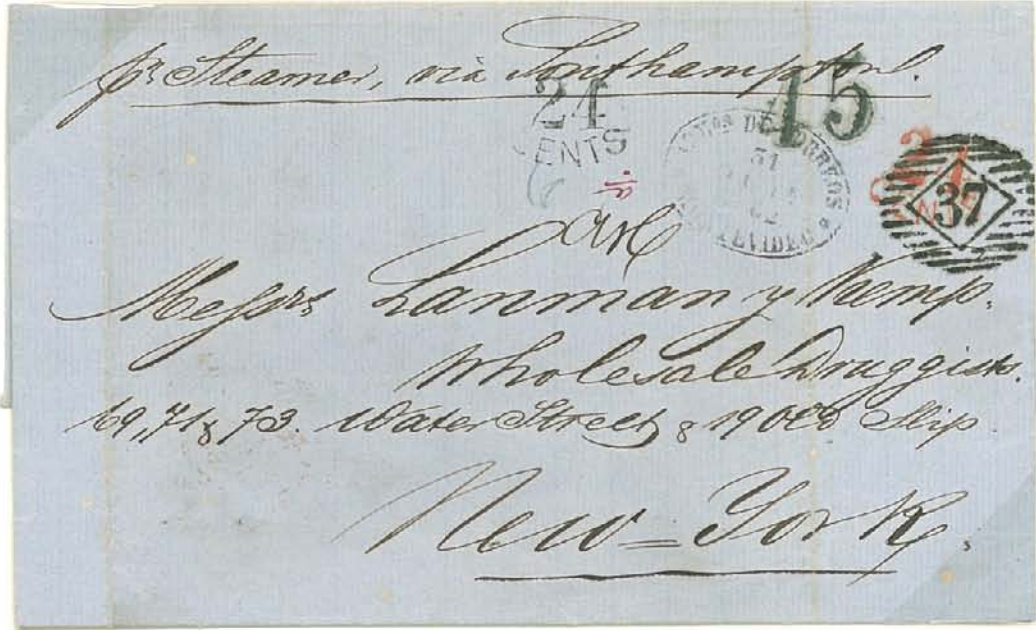 pr. Steamer, via Southampton.
24
CENTS
45
DE CORREOS
31
MONTEVIDEO
37
Messrs Lanman y Kemp.
Wholesale Druggists.
69, 71 & 73. Water Street, & 19 Old Slip
New=York.